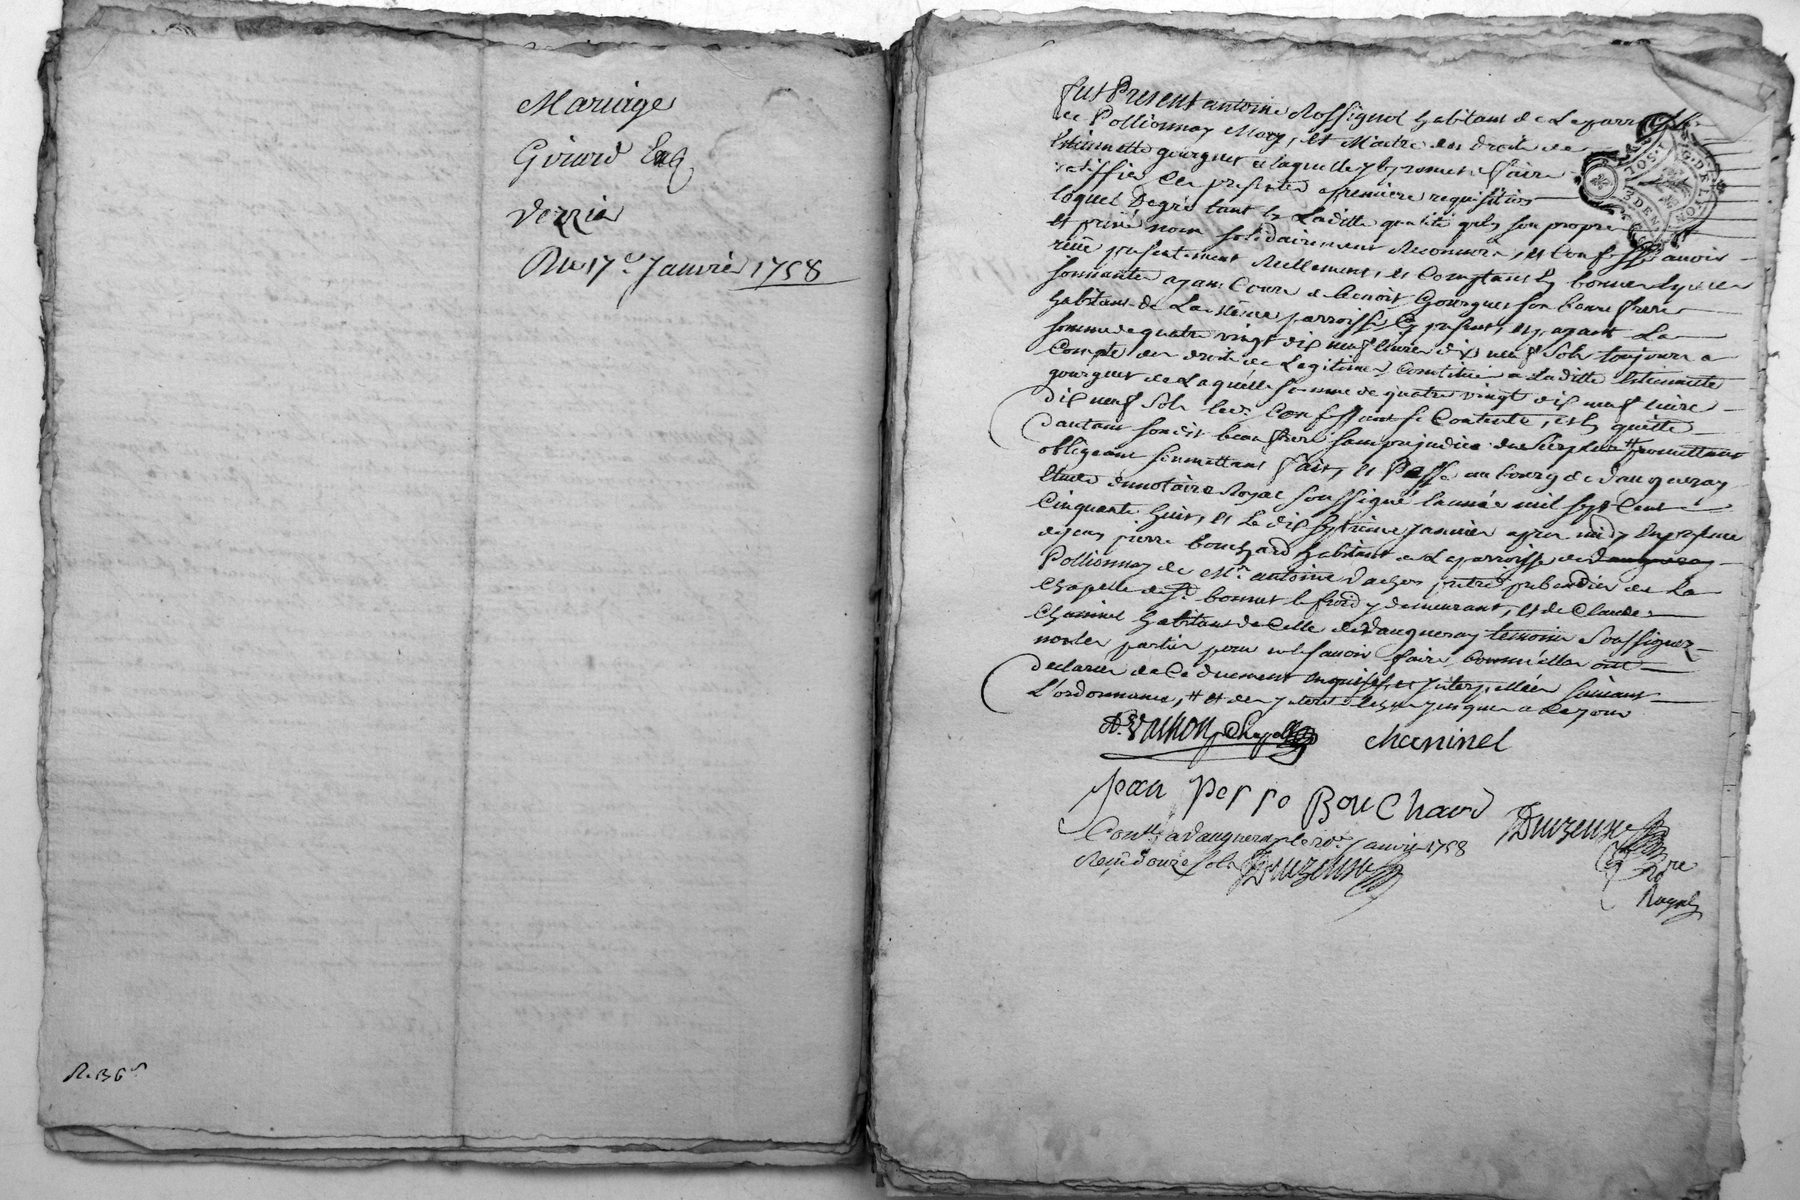 Mariage
Girard Et
Verzier
Du 17e Janvier 1758
R. B 6s
Fut Present antoine Rossignol habitant de la parroisse
de Pollionnay Mary, et Maitre des droits de
Estiennette gourguet a laquelle promet faire
ratiffier Ces presentes a premiere requisition
loquel Degré tant En Laditte qualité qu'en son propre
et privé nom solidairement Reconnoit, et Confesse avoir
reçu presentement Reellement, et Comptant En bonnes Especes
sonnantes ayant Cours de benoit Gourguet son beau frere
habitant de La même parroisse Cy present, et payant La
somme de quatre vingt dix neuf livres dix neuf sols toujours a
Compte des droits de Legitime Constitué a Laditte Estiennette
gourguet de Laquelle somme de quatre vingt dix neuf livres
dix neuf sols led. Confessant se Contente, et En quitte
d'autant sondit beau frere sans prejudice du Surplus # promettant
obligeant soumettant fait, et Passé au bourg de Vaugneray
Etude du notaire Royal soussigné l'année mil sept Cent
Cinquante huit, et Le dix septieme Janvier apres midy En presence
de jean pierre bouchard habitant de La parroisse de Vaugneray
Pollionnay de Mre. antoine Vachon pretre prebendier de La
Chapelle de St. bonnet le froid y demeurant, et de Claude
Chaninel habitant de Celle de Vaugneray temoins Soussignez
non les parties pour ne le savoir faire Comme elles ont
declarer de Ce duement enquises, et Interpellées suivant
L'ordonnance, # et des jusques a Ce jour
Vachon Chapell
Chaninel
Jean Perre Bouchard
Conllé a Vaugneray le Janvier 1758
Reçu douze sols
Royal